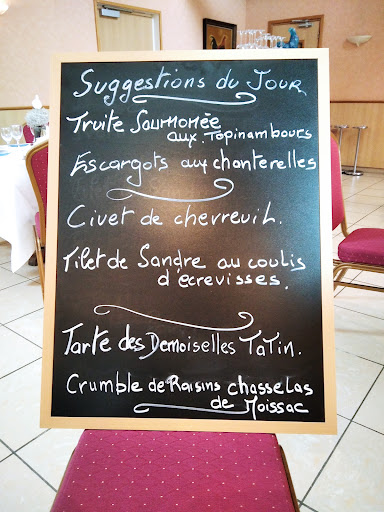 Suggestions du Jour
Truite Saumonée
aux Topinambours
Escargots aux chanterelles
Civet de chevreuil.
Filet de Sandre au coulis
d'écrevisses.
Tarte des Demoiselles Tatin.
Crumble de Raisins chasselas
de Moissac